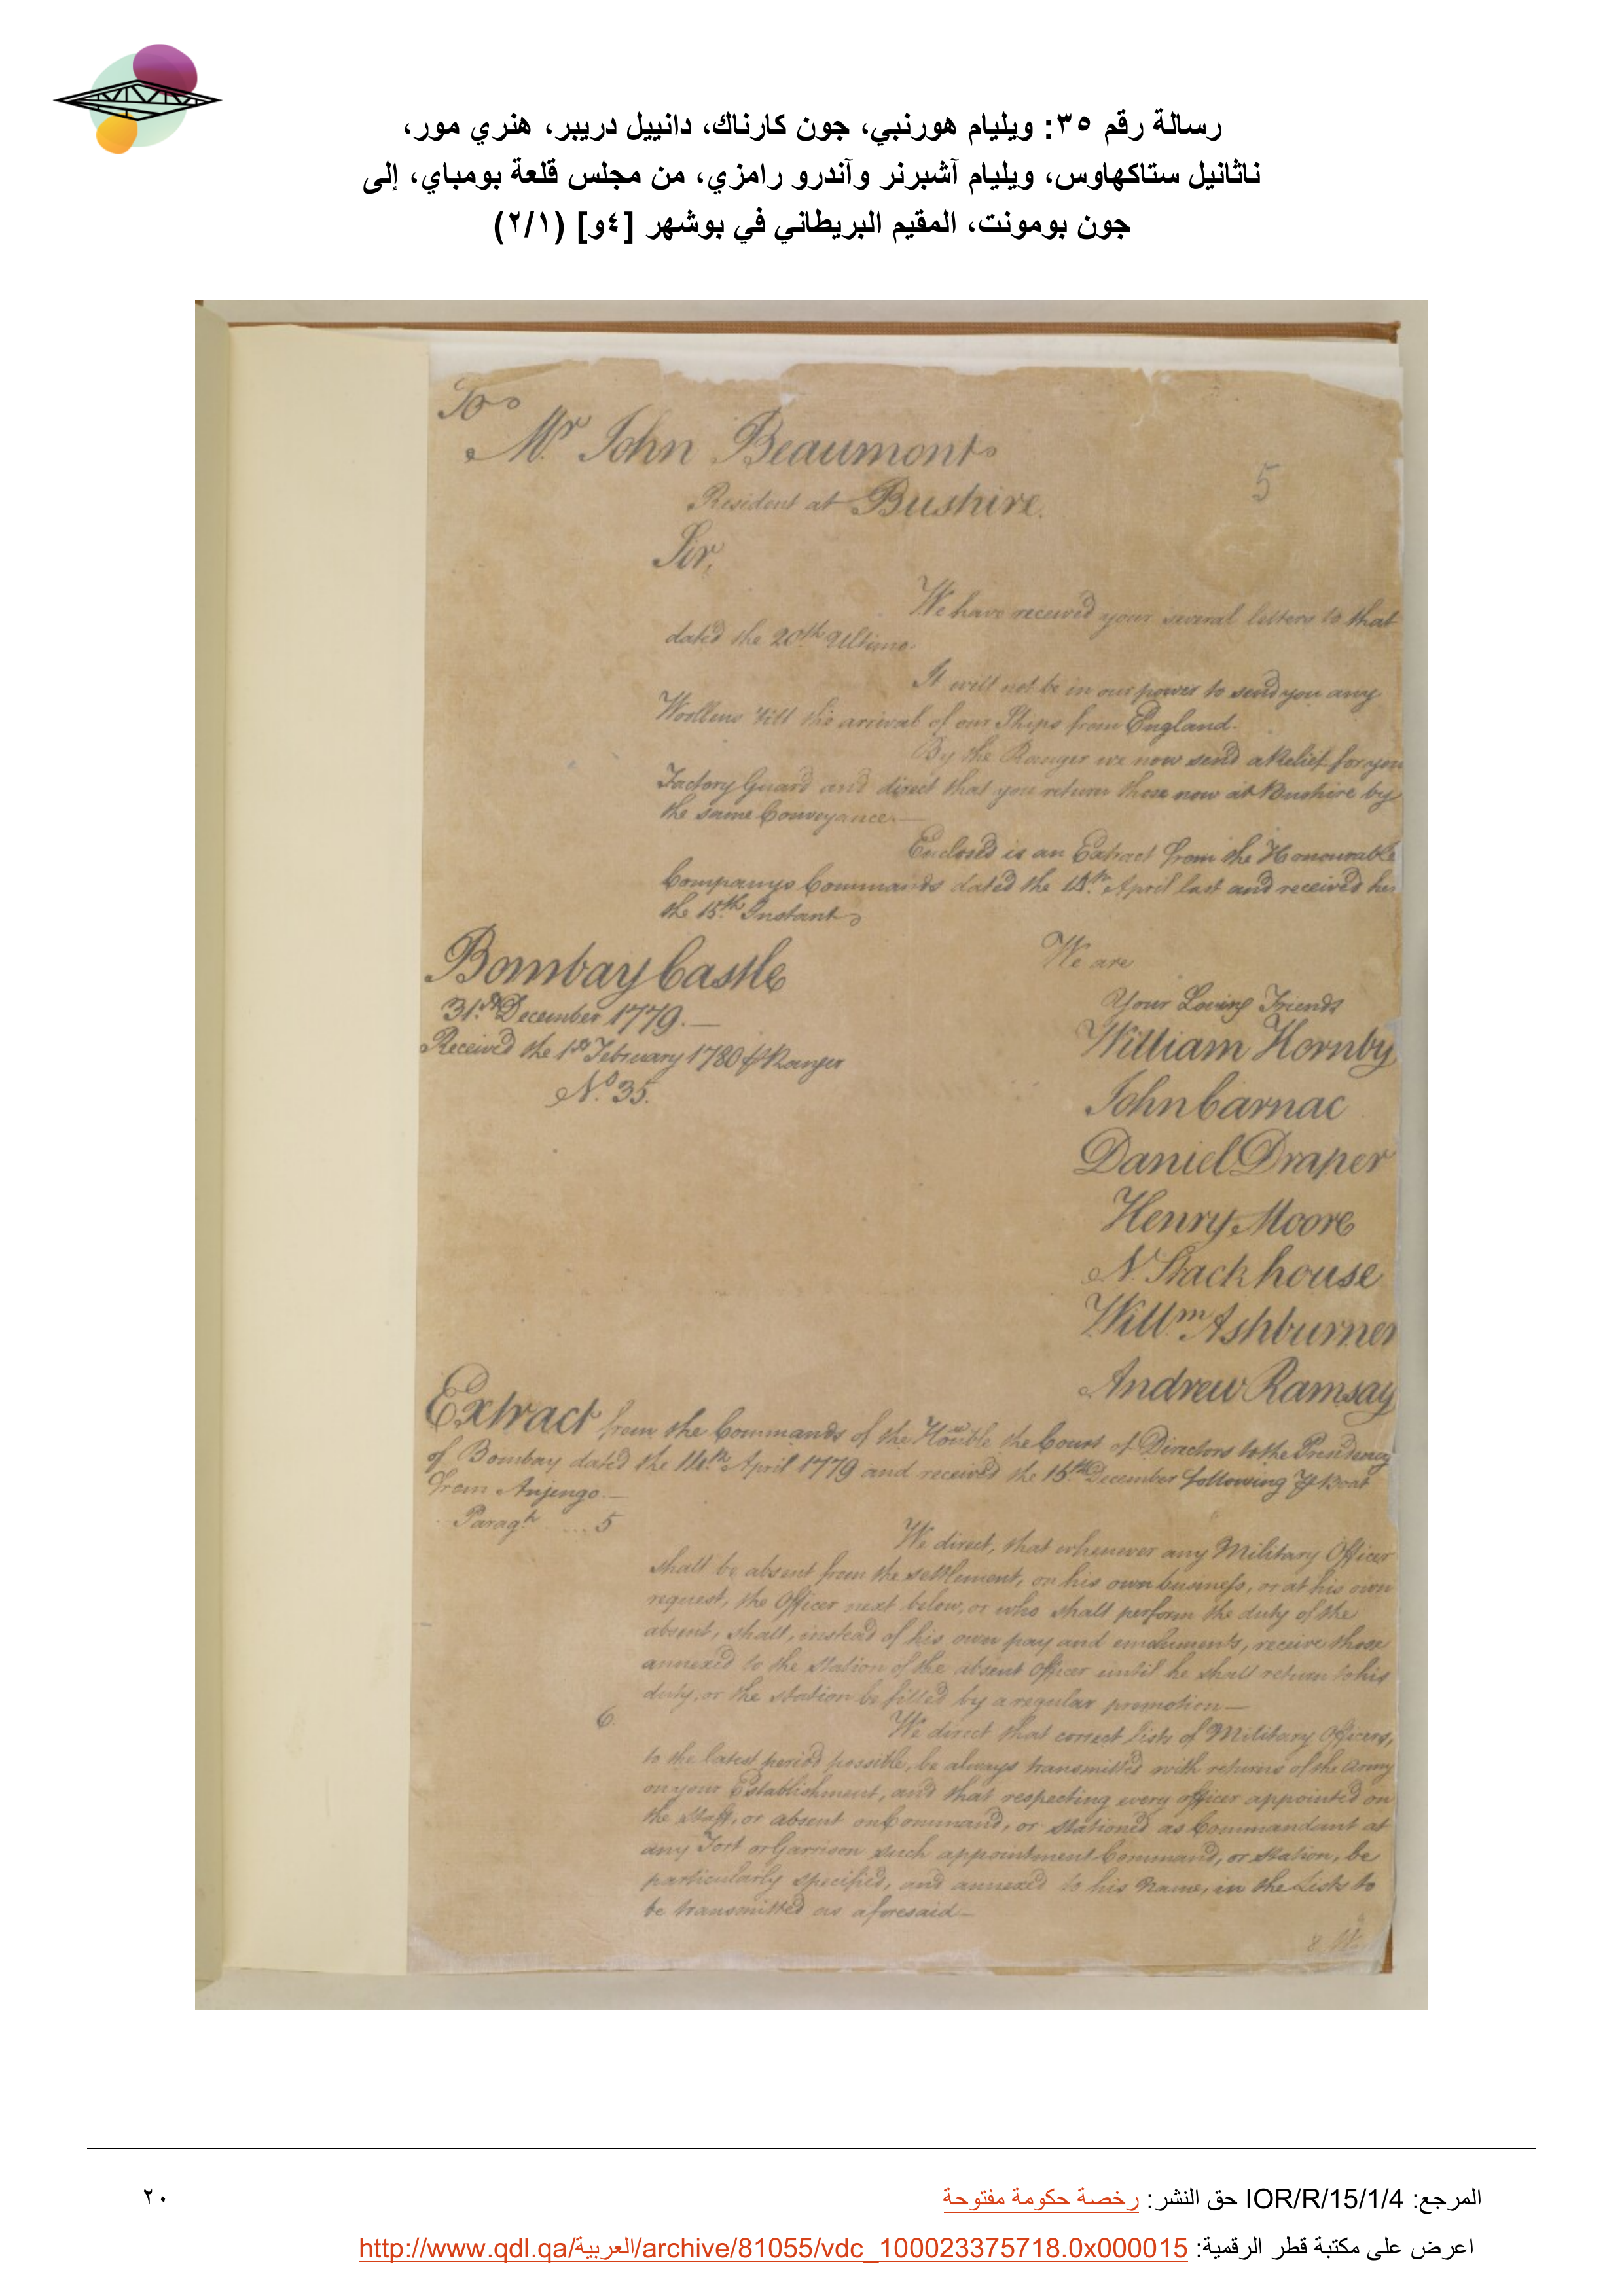 رسالة رقم ٣٥: ويليام هورنبي، جون كارناك، دانييل دريبر، هنري مور،
ناثانيل ستاكهاوس، ويليام آشبرنر وآندرو رامزي، من مجلس قلعة بومباي، إلى
جون بومونت، المقيم البريطاني في بوشهر [٤و] (٢/١)
To
Mr John Beaumont
Resident at Bushire.
5
Sir,
We have received your several letters to that
dated the 20th Ultimo.
It will not be in our power to send you any
Woollens till the arrival of our Ships from England.
By the Ranger we now send a Relief for you
Factory Guard and direct that you return those now at Bushire by
the same Conveyance.—
Enclosed is an Extract from the Honourable
Companys Commands dated the 14th April last and received her
the 15th Instant
Bombay Castle
31st December 1779.—
Received the 1st February 1780 ⅌ Ranger
No. 35.
We are
Your Loving Friends
William Hornby
John Carnac
Daniel Draper
Henry Moore
N. Stackhouse
Willm Ashburner
Andrew Ramsay
Extract from the Commands of the Honble the Court of Directors to the Presidency
of Bombay dated the 14th April 1779 and received the 15th December following ⅌ Boat
from Anjengo.—
Paragh ... 5
We direct, that whenever any Military Officer
shall be absent from the settlement, on his own business, or at his own
request, the Officer next below, or who shall perform the duty of the
absent, shall, instead of his own pay and emoluments, receive those
annexed to the station of the absent Officer until he shall return to his
duty, or the station be filled by a regular promotion—
6.
We direct that correct lists of Military Officers,
to the latest period possible, be always transmitted with returns of the Army
on your Establishment, and that respecting every officer appointed on
the Staff, or absent on Command, or stationed as Commandant at
any Fort or Garrison such appointment Command, or station, be
particularly specified, and annexed to his Name, in the Lists to
be transmitted as aforesaid—
8. We
المرجع: IOR/R/15/1/4 حق النشر: رخصة حكومة مفتوحة
٢٠
اعرض على مكتبة قطر الرقمية: http://www.qdl.qa/العربية/archive/81055/vdc_100023375718.0x000015